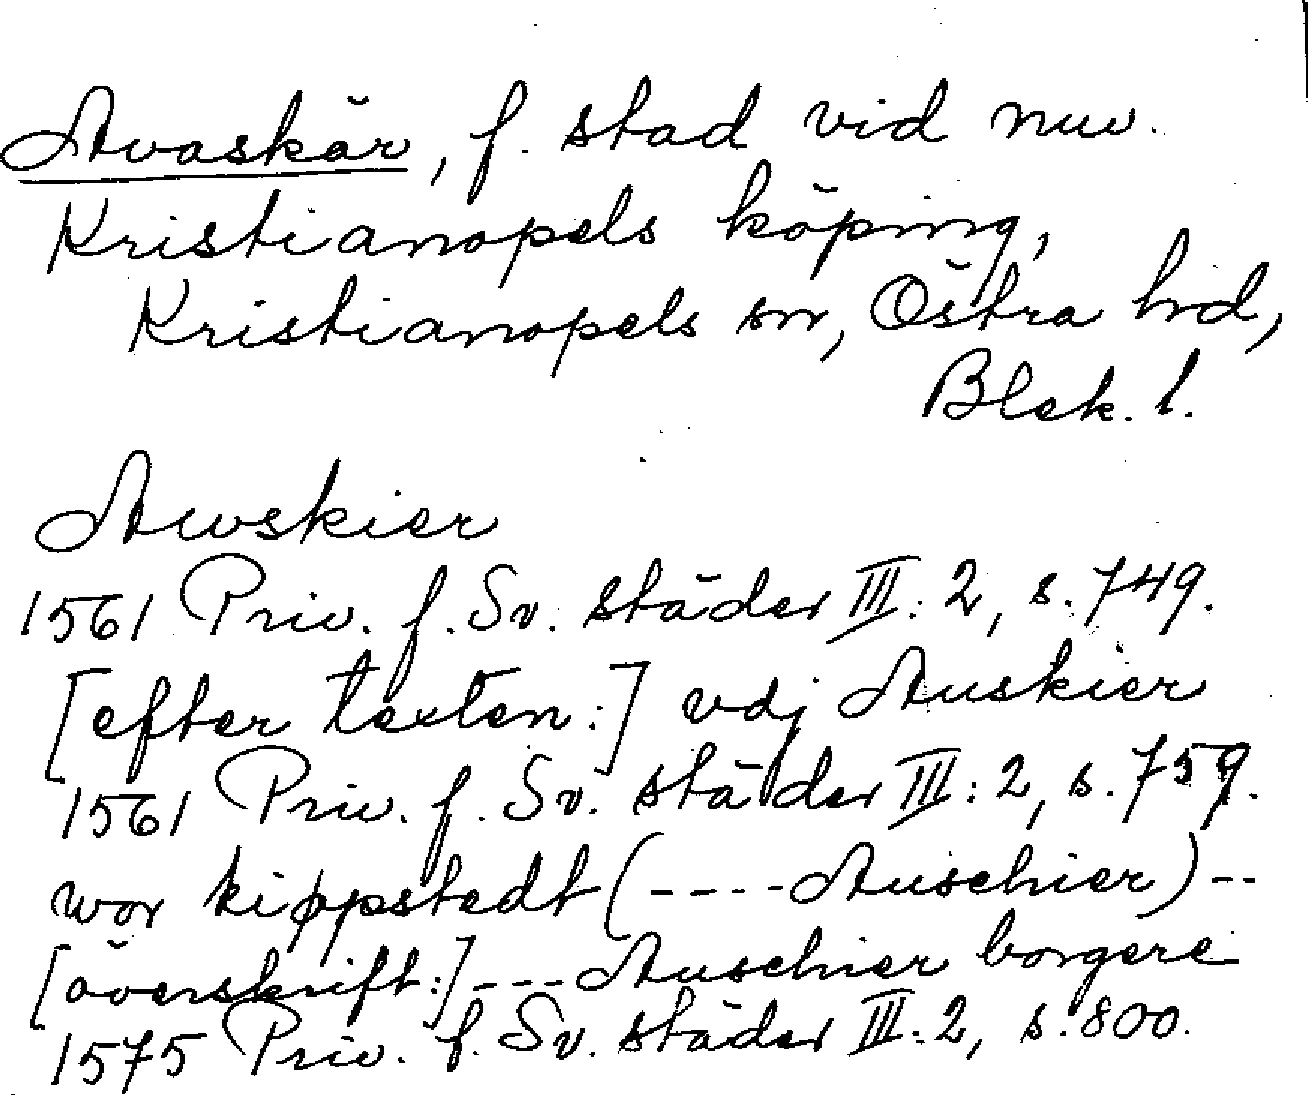 Avaskär, f. stad vid nuv.
Kristianopels köping,
Kristianopels sn, Östra hd,
Blek. l.
Awskier
1561 Priv. f. Sv. städer III: 2, s. 749.
[efter texten:] vdj Auskier
1561 Priv. f. Sv. städer III: 2, s. 759.
wor kippstedt (----Auschier)--
[överskrift:] ---Auschier borgere
1575 Priv. f. Sv. städer III: 2, s. 800.